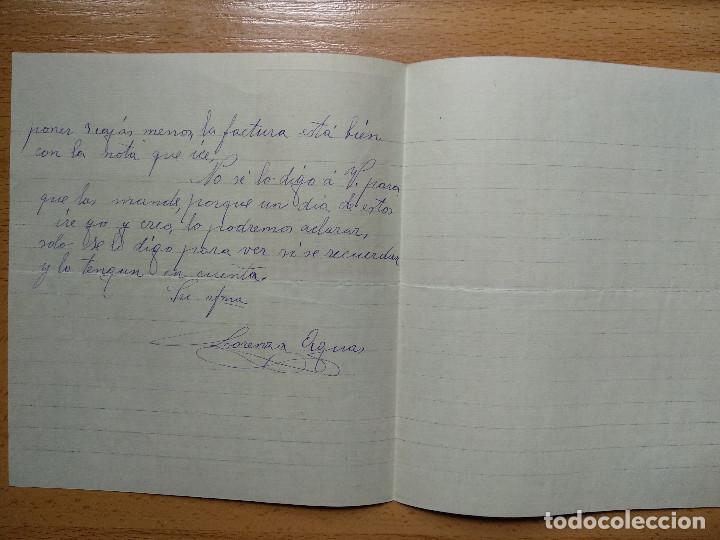 poner 3 cajas menos, la factura está bién
con la nota que ice,
No sé lo digo á V. para
que las mande, porque un día de estos
ire yo y creo, lo podremos aclarar,
solo se lo digo para ver si se recuerdan
y lo tengan en cuenta.
Su afma
Lorenza Aguas
todocoleccion.net